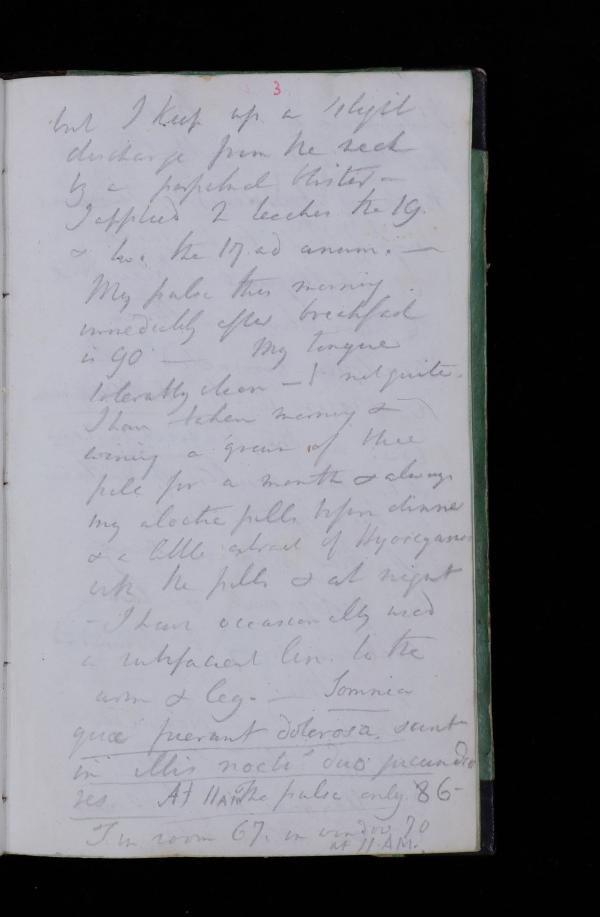 3
but I keep up a slight
discharge from the neck
by a perpetual blister —
I applied 2 leeches the 19
& two the 17 ad anum. —
My pulse this morning
immediately after breakfast
is 90 — My tongue
tolerably clean — not quite.
I have taken morning &
evening a grain of blue
pill for a month & always
my aloetic pills before dinner
& a little extract of Hyoscyamus
with the pills & at night
- I have occasionally used
a rubefacient lin. to the
arm & leg. — Somnia
quæ fuerant dolorosa, sunt
in illis nocti duo jucundio
res. At 11 AM the pulse only 86 -
T. in room 67. in window 70
at 11 A.M.